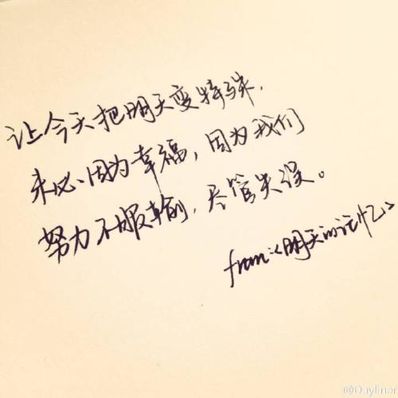 让今天把明天变特殊,
未必因为幸福,因为我们
努力不服输,尽管失误。
from:《明天的记忆》